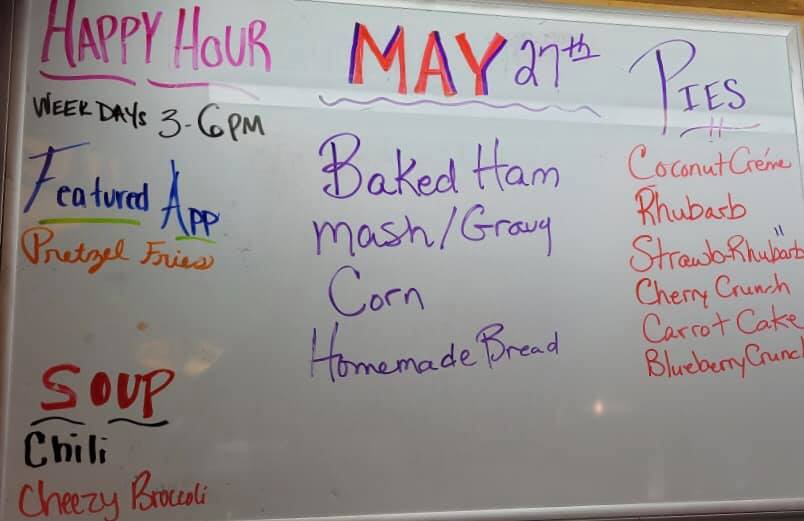 HAPPY HOUR
WEEKDAYS 3-6PM
Featured APP
Pretzel Fries
SOUP
Chili
Cheezy Broccoli
MAY 27th
Baked Ham
mash/Gravy
Corn
Homemade Bread
PIES
Coconut Créme
Rhubarb
Strawb-Rhubarb
Cherry Crunch
Carrot Cake
Blueberry Crunch